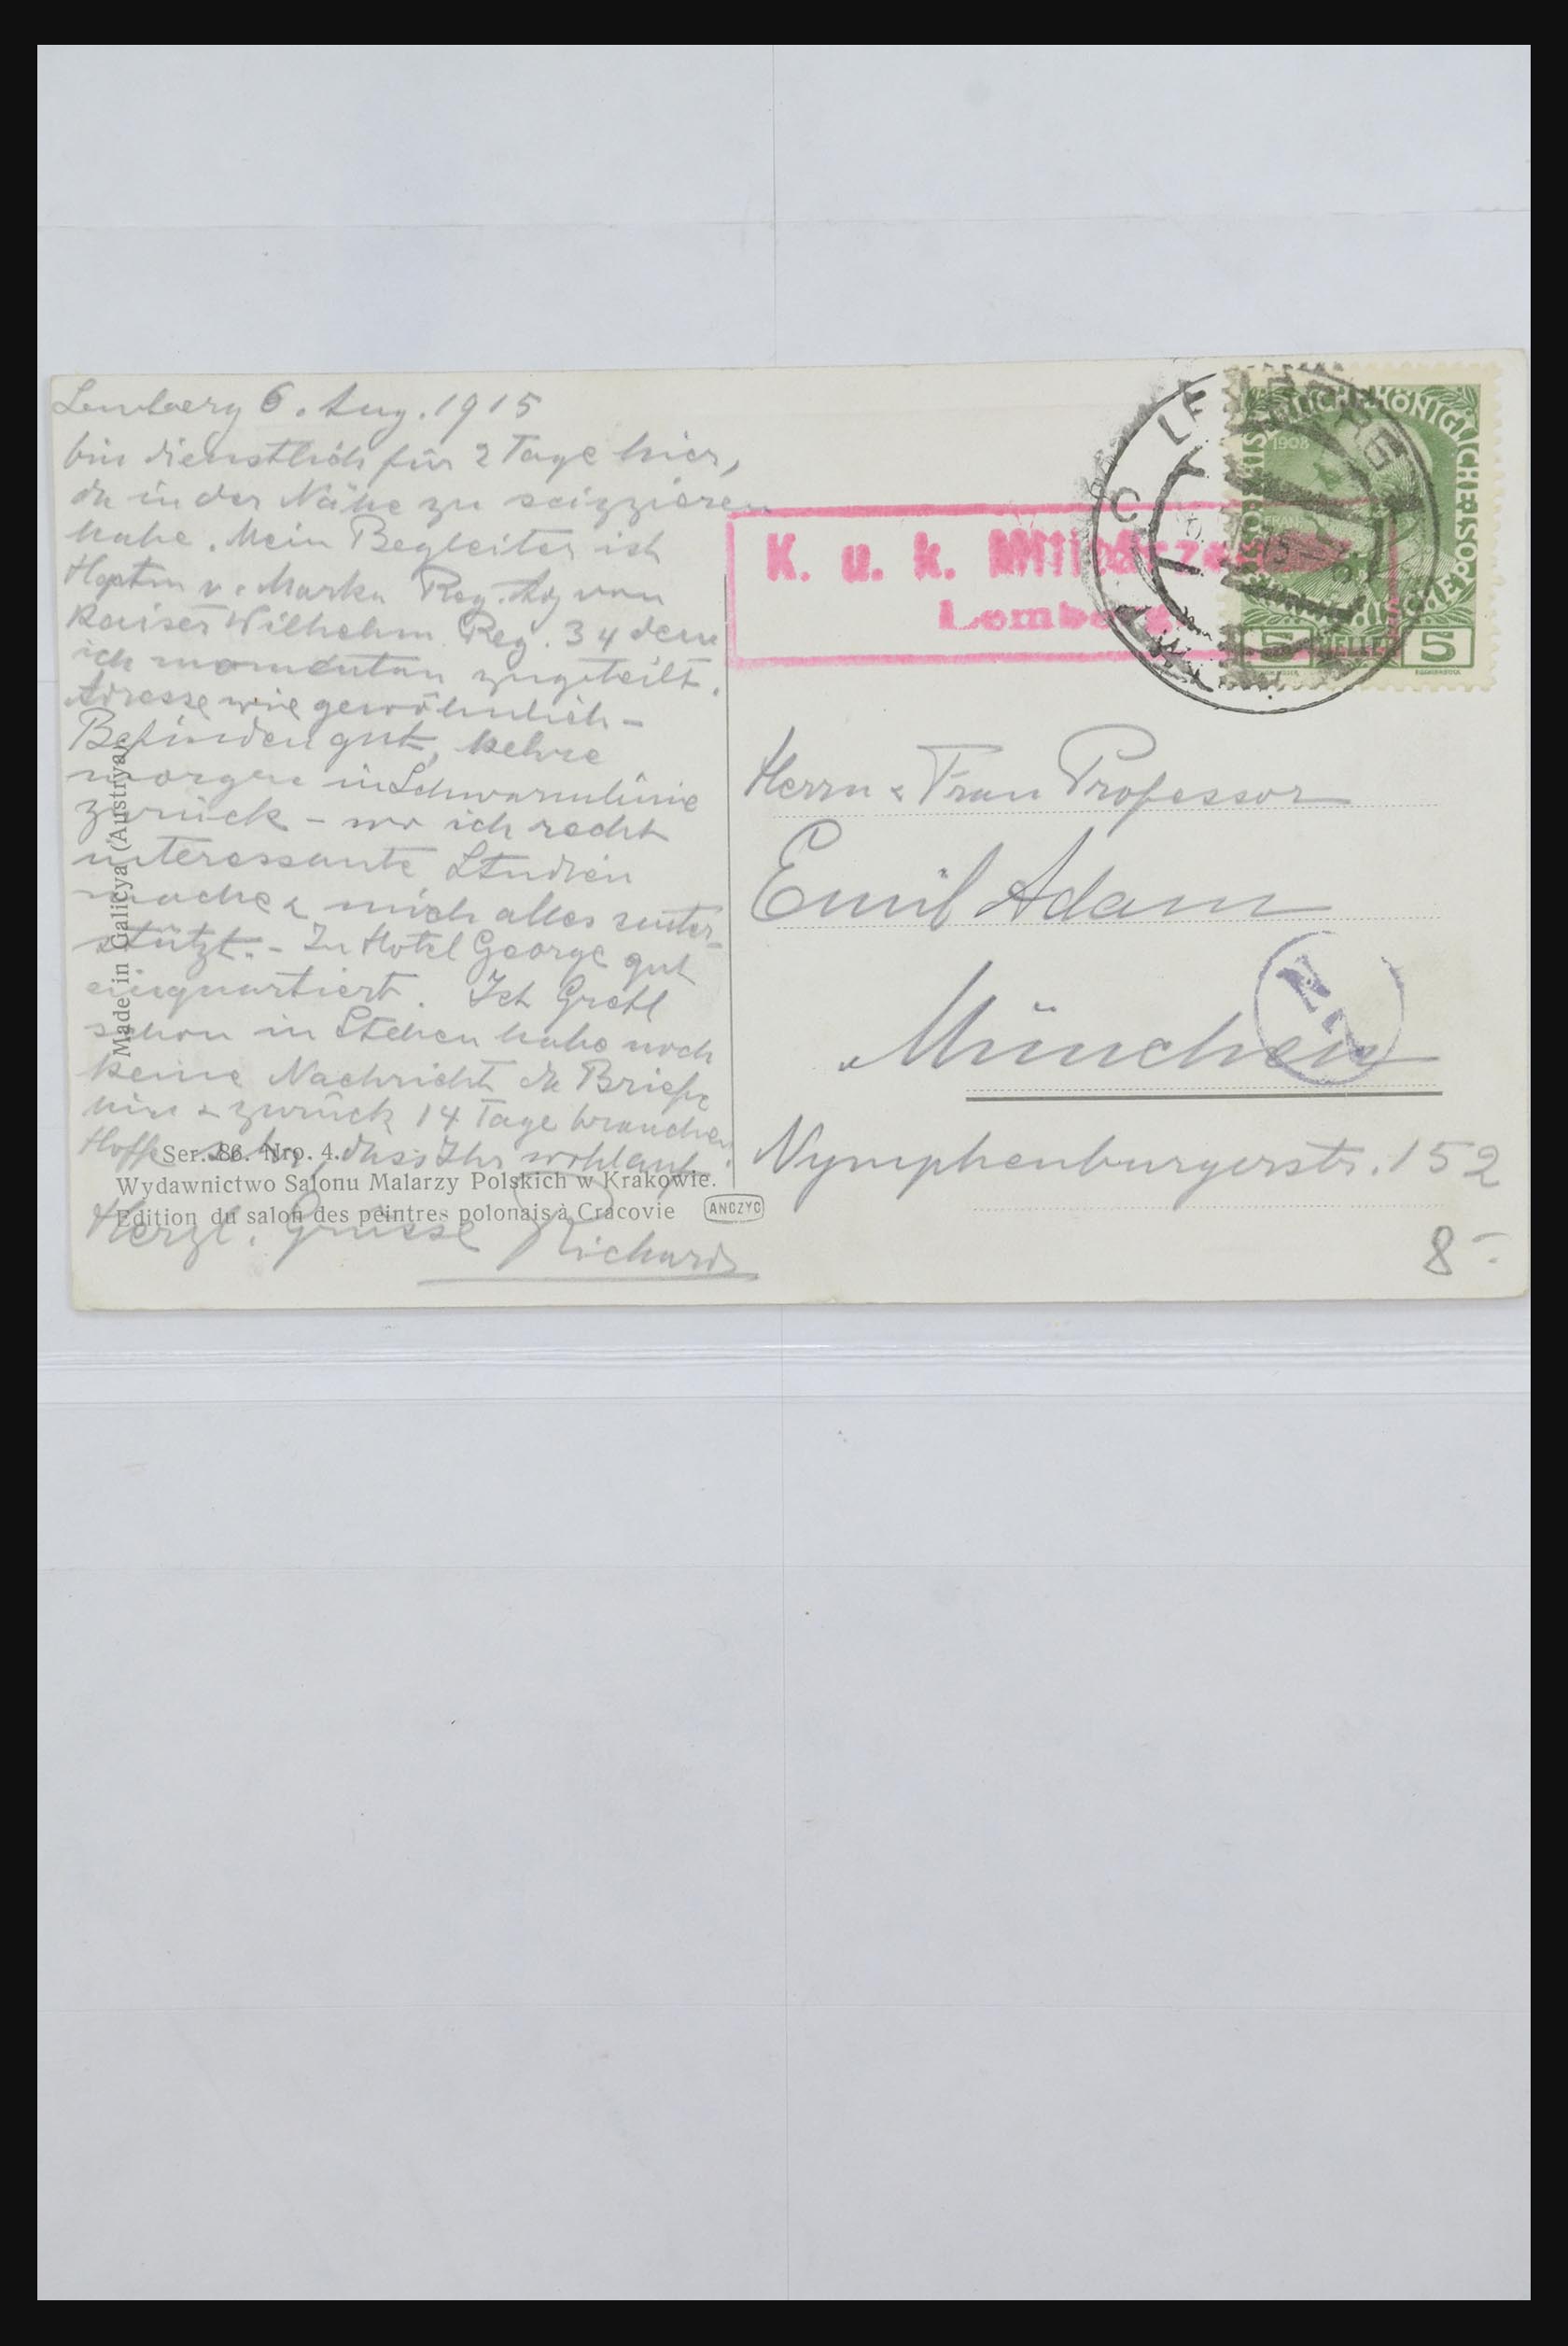 Lemberg 6. Aug. 1915
bin dienstlich für 2 Tage hier,
da in der Nähe zu scizzieren
habe. Mein Begleiter ist
Hptm v. Marka Reg. von
Kaiser Wilhelm Reg. 34 dem
ich momentan zugeteilt.
Adresse wie gewöhnlich -
Befinden gut, kehre
morgen in Schwarmlinie
zurück - wo ich recht
interessante Studien
mache & mich alles unter-
stützt. - In Hotel George gut
einquartiert. Ist Gretl
schon in Steben habe noch
keine Nachricht da Briefe
hin & zurück 14 Tage brauchen
Hoffe sehr, dass Ihr wohlauf.
Herzl. Grüsse Richard
Made in Galicya (Austrya).
Ser. 86. Nro. 4.
Wydawnictwo Salonu Malarzy Polskich w Krakowie.
Edition du salon des peintres polonais à Cracovie
ANCZYC
K. u. k. Militärzensur
Lemberg
1908
5 HELLER 5
Herrn & Frau Professor
Emil Adam
München
N
7
Nymphenburgerstr. 152
8 -